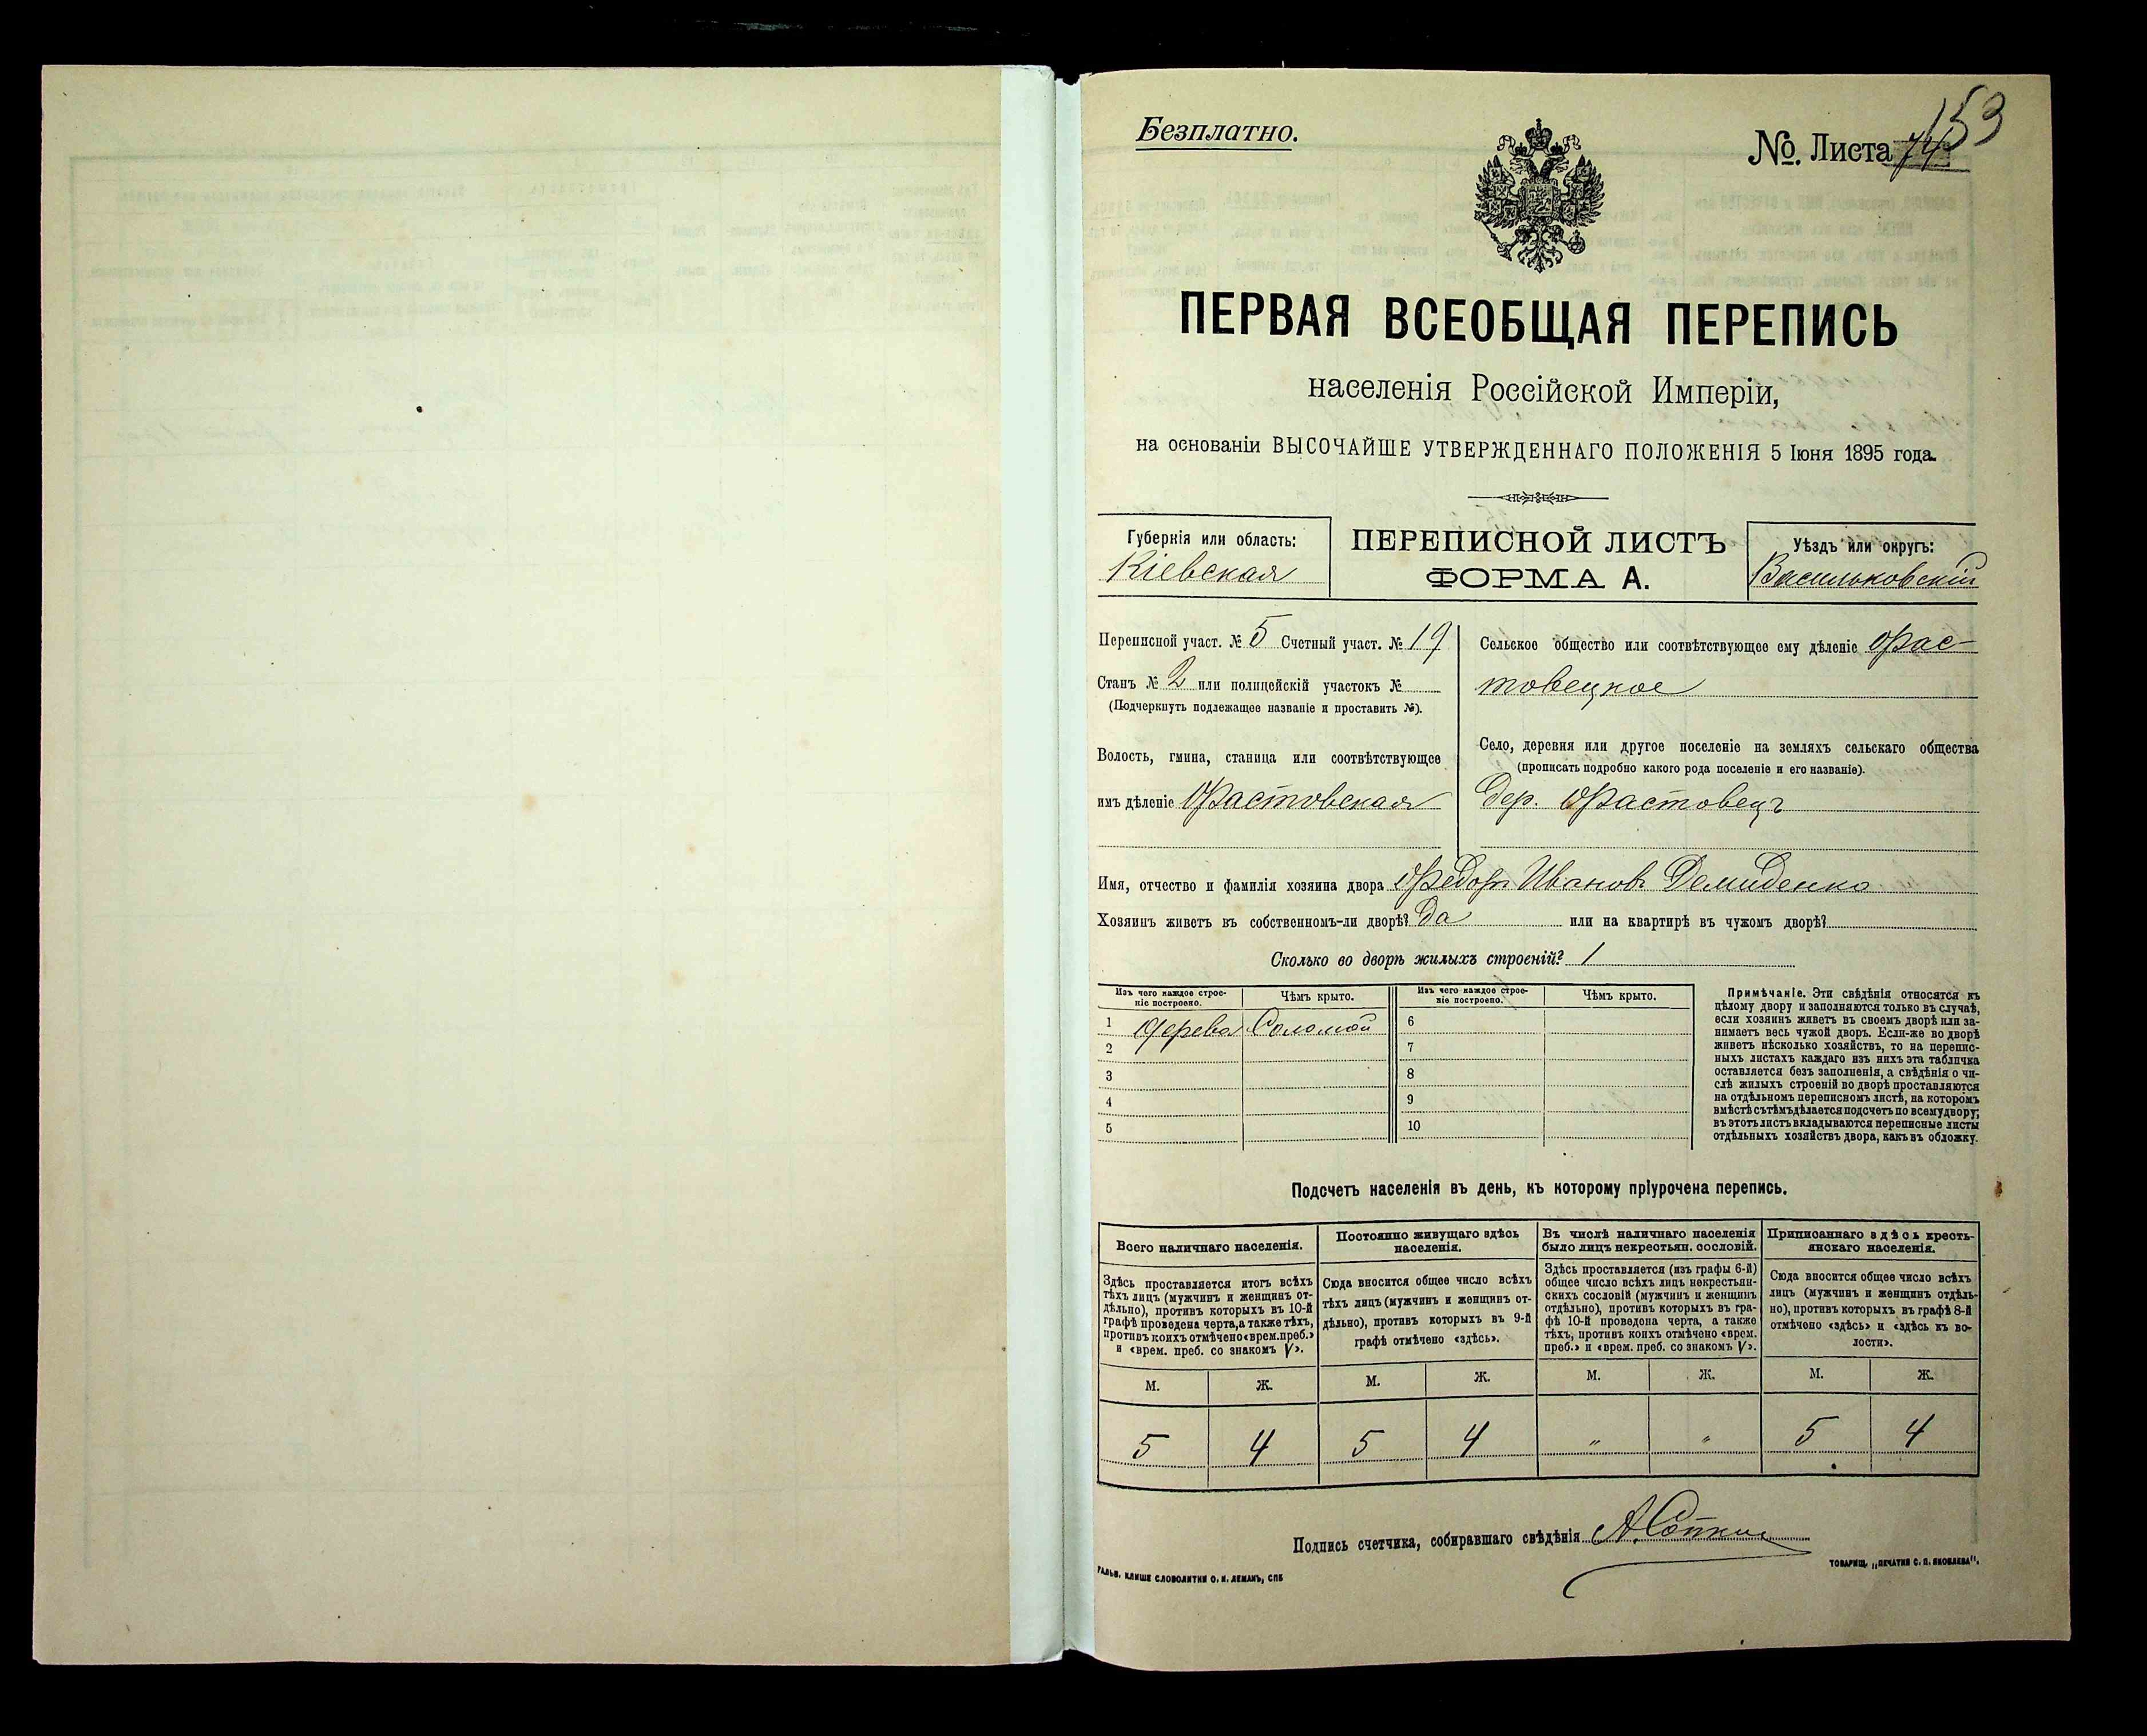 Безплатно.
№. Листа 74 153
ПЕРВАЯ ВСЕОБЩАЯ ПЕРЕПИСЬ
населенія Россійской Имперіи,
на основаніи ВЫСОЧАЙШЕ УТВЕРЖДЕННАГО ПОЛОЖЕНІЯ 5 Іюня 1895 года.
Губернія или область:
Кіевская
ПЕРЕПИСНОЙ ЛИСТЪ
ФОРМА А.
Уѣздъ или округъ:
Васильковскій
Переписной участ. № 5 Счетный участ. № 19
Станъ № 2 или полицейскій участокъ №
(Подчеркнуть подлежащее названіе и проставить №).
Волость, гмина, станица или соотвѣтствующее
имъ дѣленіе Фастовская
Сельское общество или соотвѣтствующее ему дѣленіе Фас-
товецкое
Село, деревня или другое поселеніе на земляхъ сельскаго общества
(прописать подробно какого рода поселеніе и его названіе).
Дер. Фастовецъ
Имя, отчество и фамилія хозяина двора Федоръ Ивановъ Демиденко
Хозяинъ живетъ въ собственномъ-ли дворѣ? Да или на квартирѣ въ чужомъ дворѣ?
Сколько во дворѣ жилыхъ строеній? 1
Изъ чего каждое строе-
ніе построено.
Чѣмъ крыто.
Изъ чего каждое строе-
ніе построено.
Чѣмъ крыто.
1 Дерева Соломой 6
2 7
3 8
4 9
5 10
Примѣчаніе. Эти свѣдѣнія относятся къ
цѣлому двору и заполняются только въ случаѣ,
если хозяинъ живетъ въ своемъ дворѣ или за-
нимаетъ весь чужой дворъ. Если-же во дворѣ
живетъ нѣсколько хозяйствъ, то на перепис-
ныхъ листахъ каждаго изъ нихъ эта табличка
оставляется безъ заполненія, а свѣдѣнія о чи-
слѣ жилыхъ строеній во дворѣ проставляются
на отдѣльномъ переписномъ листѣ, на которомъ
вмѣстѣ съ тѣмъ дѣлается подсчетъ по всему двору;
въ этотъ листъ вкладываются переписные листы
отдѣльныхъ хозяйствъ двора, какъ въ обложку.
Подсчетъ населенія въ день, къ которому пріурочена перепись.
Всего наличнаго населенія.
Постоянно живущаго здѣсь
населенія.
Въ числѣ наличнаго населенія
было лицъ некрестьян. сословій.
Приписаннаго здѣсь кресть-
янскаго населенія.
Здѣсь проставляется итогъ всѣхъ
тѣхъ лицъ (мужчинъ и женщинъ от-
дѣльно), противъ которыхъ въ 10-й
графѣ проведена черта, а также тѣхъ,
противъ коихъ отмѣчено «врем. преб.»
и «врем. преб. со знакомъ V».
Сюда вносится общее число всѣхъ
тѣхъ лицъ (мужчинъ и женщинъ от-
дѣльно), противъ которыхъ въ 9-й
графѣ отмѣчено «здѣсь».
Здѣсь проставляется (изъ графы 6-й)
общее число всѣхъ лицъ некрестьян-
скихъ сословій (мужчинъ и женщинъ
отдѣльно), противъ которыхъ въ гра-
фѣ 10-й проведена черта, а также
тѣхъ, противъ коихъ отмѣчено «врем.
преб.» и «врем. преб. со знакомъ V».
Сюда вносится общее число всѣхъ
лицъ (мужчинъ и женщинъ отдѣль-
но), противъ которыхъ въ графѣ 8-й
отмѣчено «здѣсь» и «здѣсь къ во-
лости».
М. Ж. М. Ж. М. Ж. М. Ж.
5 4 5 4 " " 5 4
Подпись счетчика, собиравшаго свѣдѣнія
ГАЛЬВ. КЛИШЕ СЛОВОЛИТНИ О. И. ЛЕМАНЪ, СПБ
ТОВАРИЩ. „ПЕЧАТНЯ С. П. ЯКОВЛЕВА".